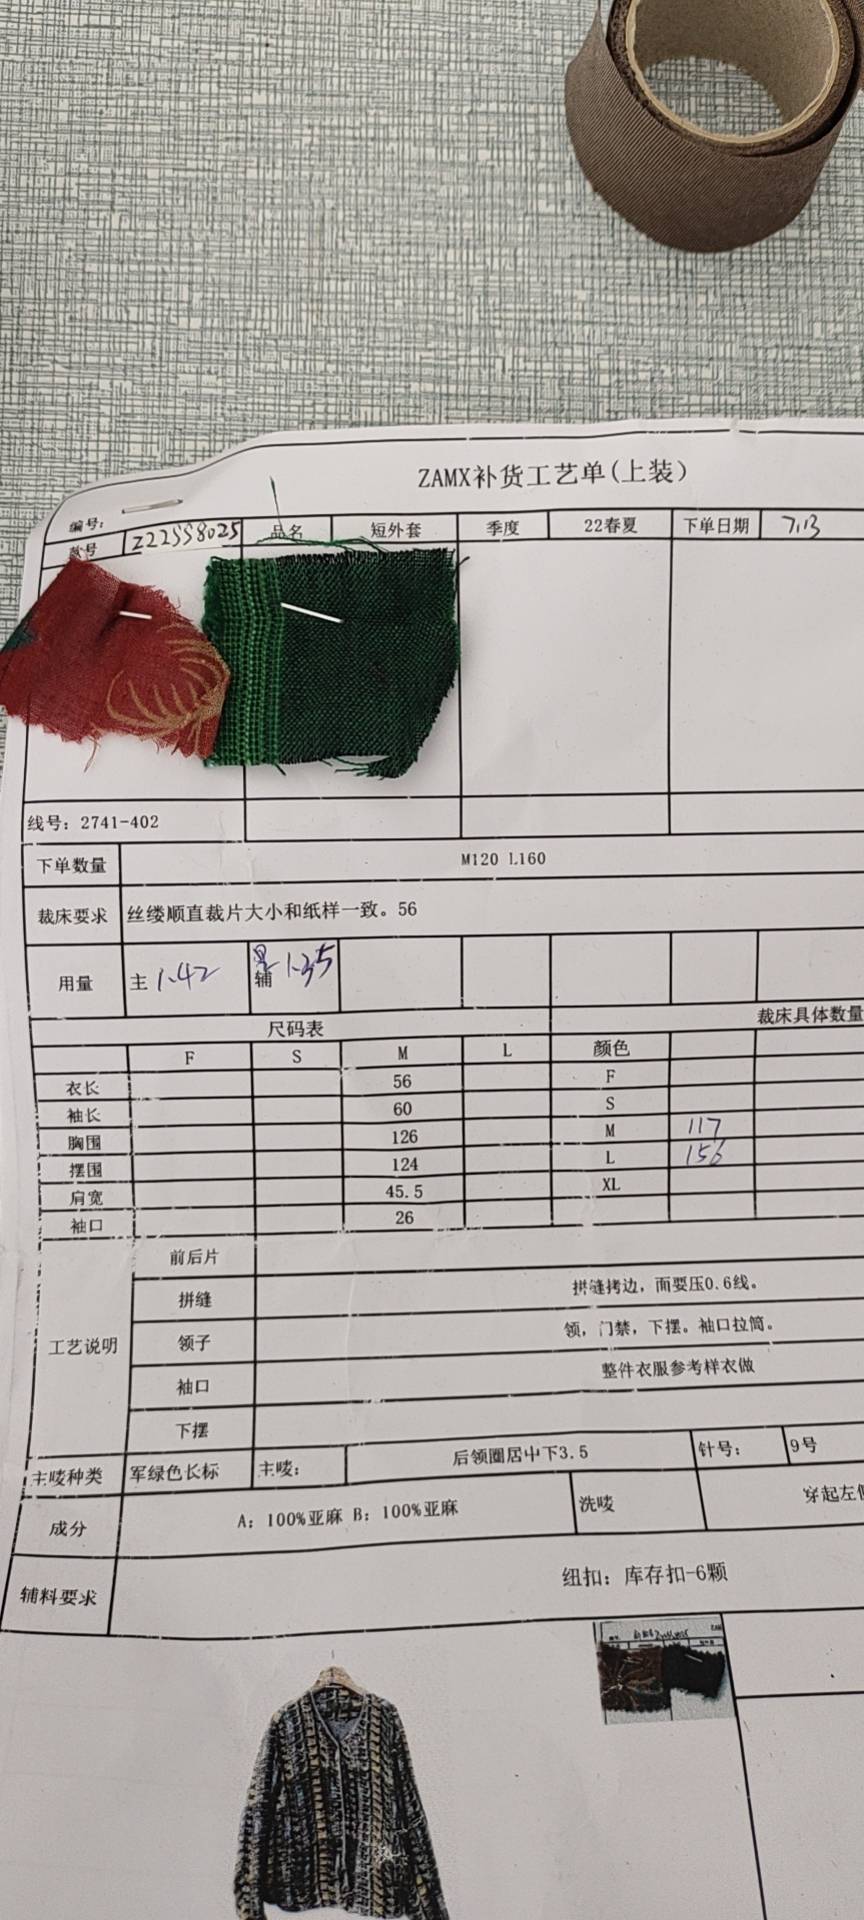 ZAMX补货工艺单(上装)
编号:
款号 Z22SS8025 品名 短外套 季度 22春夏 下单日期 7.13
线号: 2741-402
下单数量 M120 L160
裁床要求 丝缕顺直裁片大小和纸样一致。56
用量 主 1.42 辅 1.35
尺码表 裁床具体数量
F S M L 颜色
衣长 56 F
袖长 60 S
胸围 126 M 117
摆围 124 L 156
肩宽 45.5 XL
袖口 26
工艺说明
前后片
拼缝 拼缝拷边，而要压0.6线。
领子 领，门禁，下摆。袖口拉筒。
袖口 整件衣服参考样衣做
下摆
主唛种类 军绿色长标 主唛: 后领圈居中下3.5 针号: 9号
成分 A: 100%亚麻 B: 100%亚麻 洗唛 穿起左
辅料要求 纽扣: 库存扣-6颗